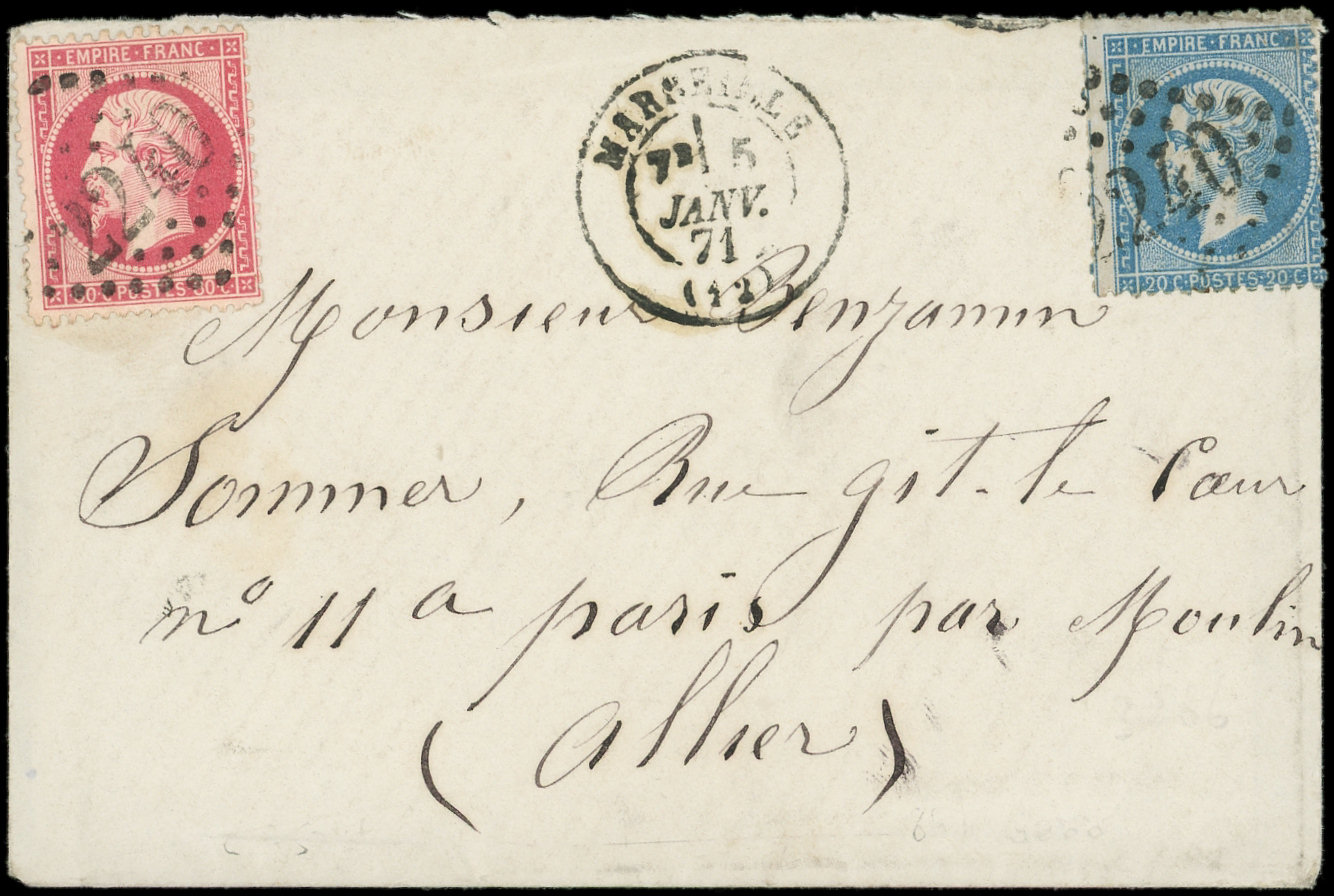 EMPIRE FRANC
2240
80 C POSTES 80 C
EMPIRE FRANC
2240
20 C POSTES 20 C
MARSEILLE
5
JANV.
71
(12)
Monsieur Benjamin
Sommer, Rue git-le Cœur
n° 11 a paris par Moulin
(allier)